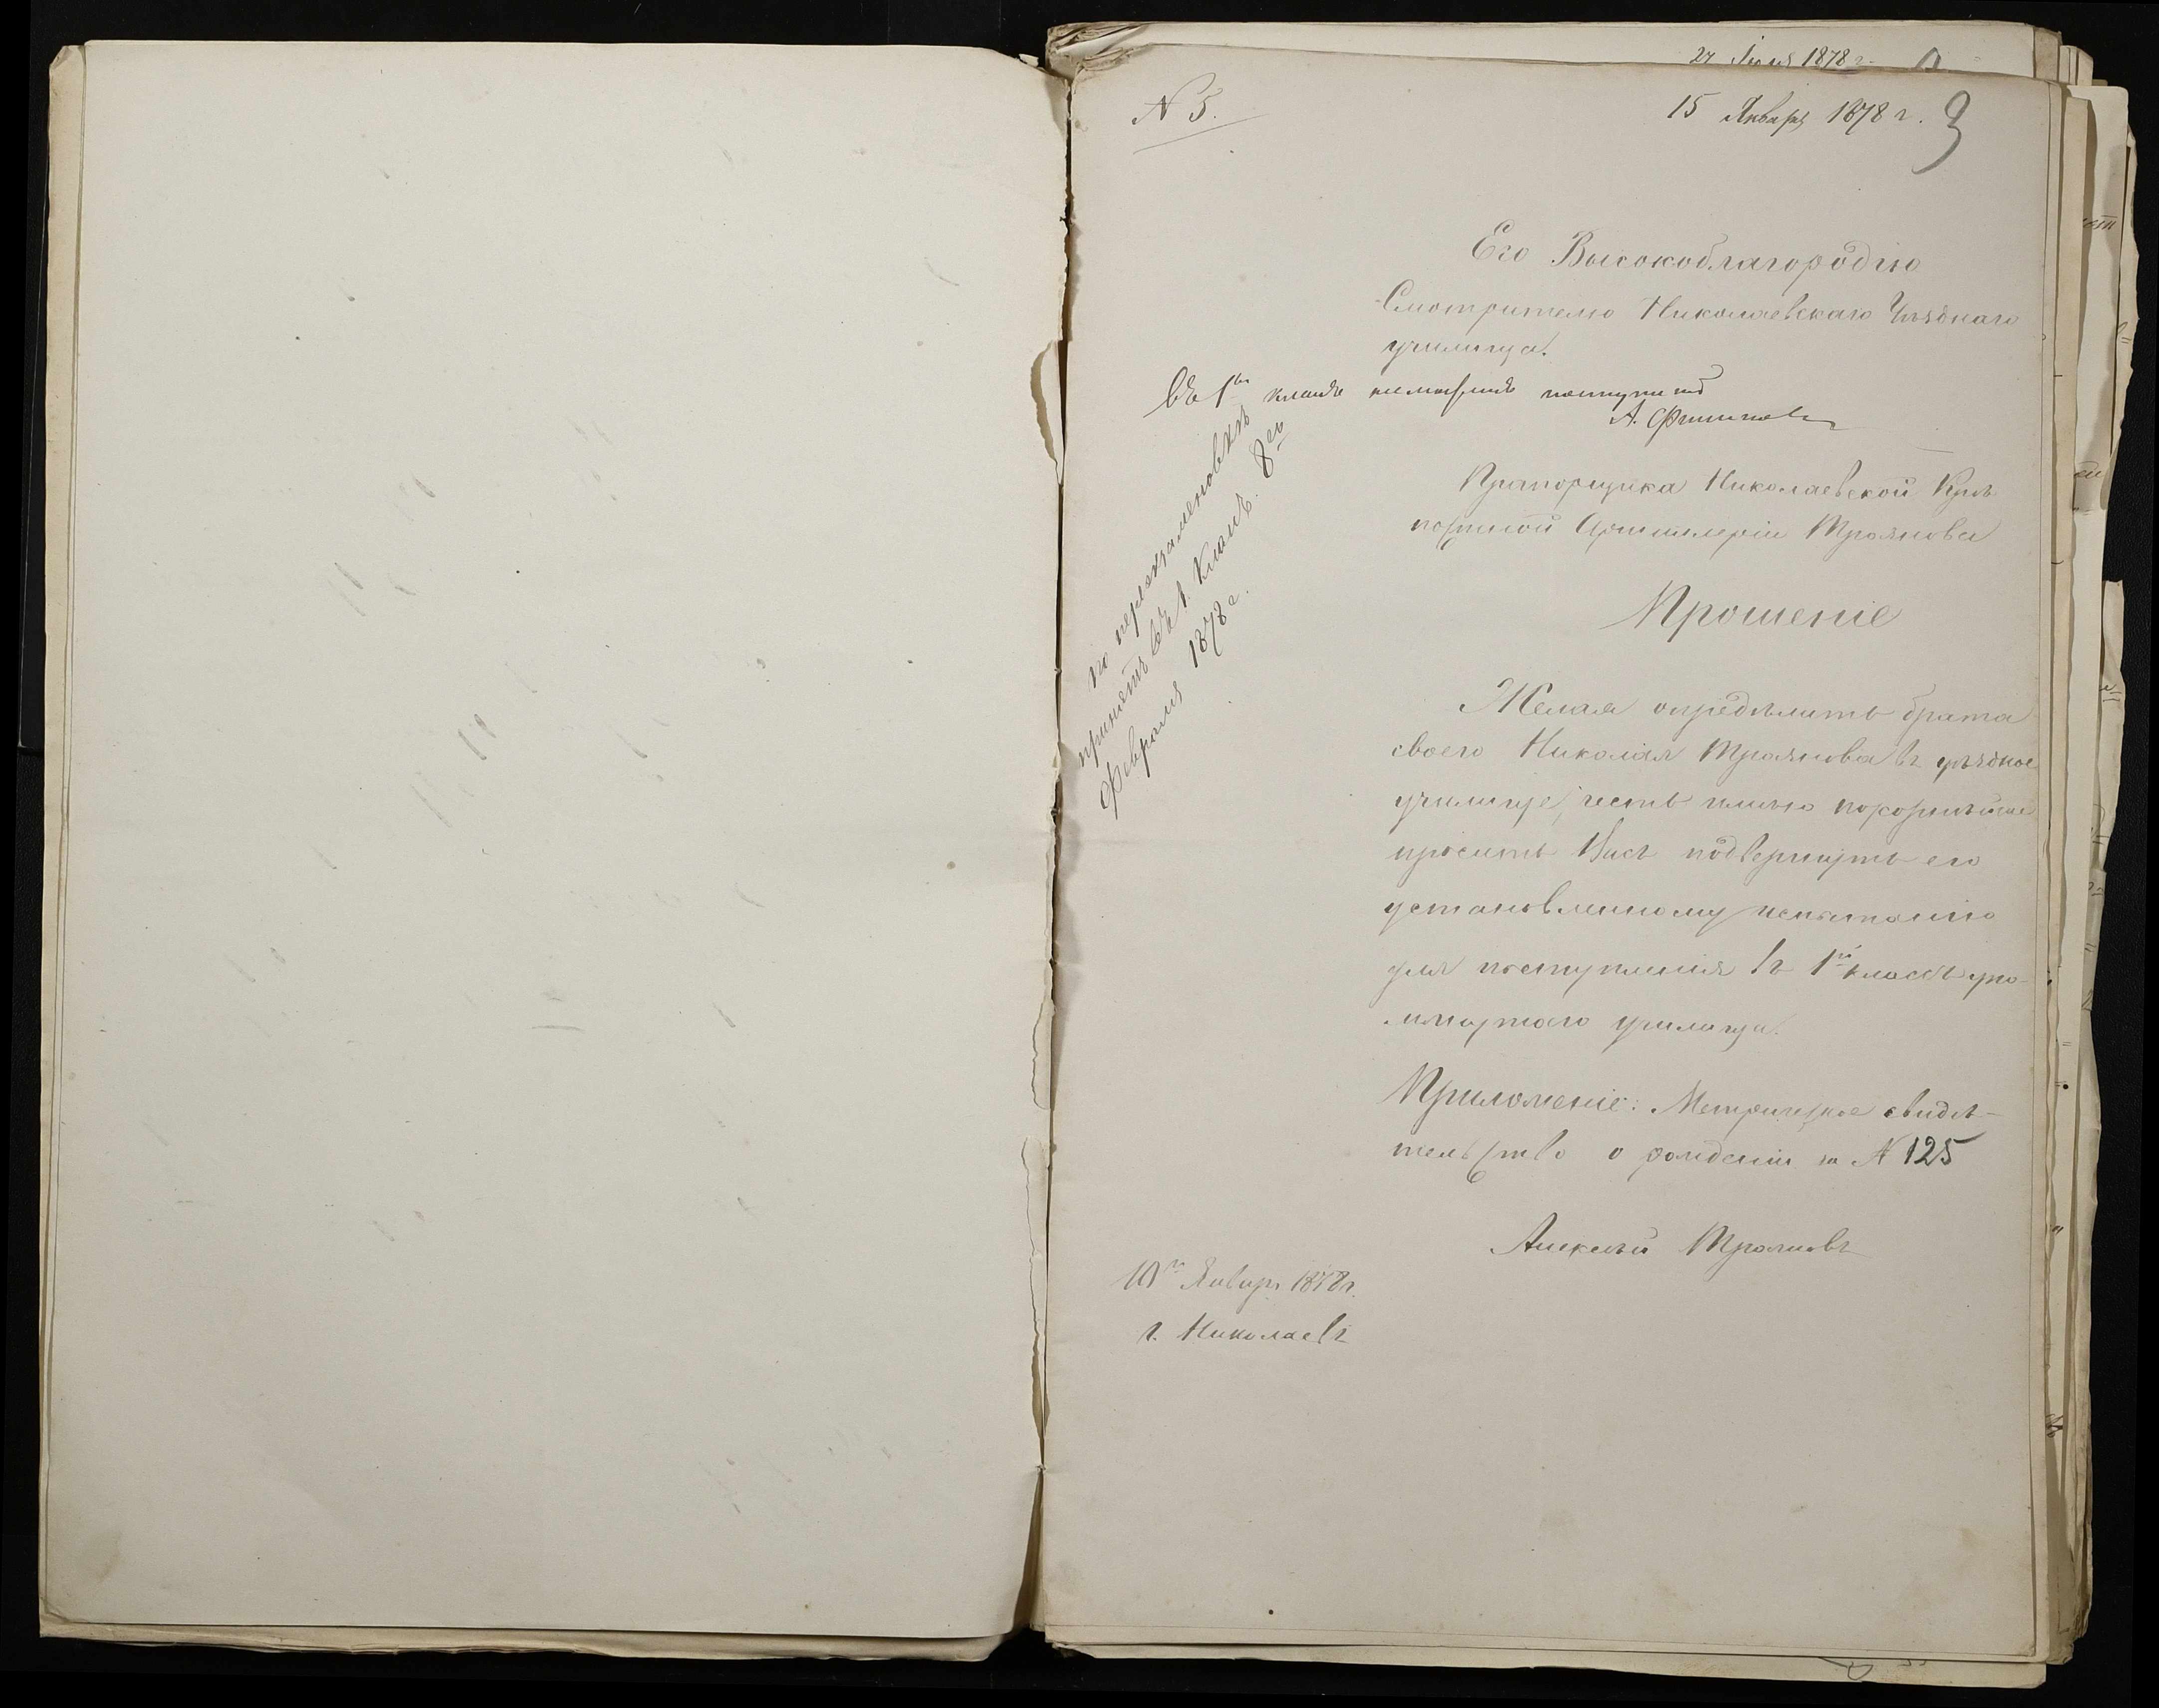 27 Июля 1878 г.
N 5.
15 Январѧ 1878 г. 3
Его Высокоблагородію
Смотрителю Николаевскаго Уѣзднаго
училища.
Въ 1й классъ можетъ поступить
А. Филиповъ
по переэкзаменовкѣ
принятъ въ 1. Классъ. 8го
Февраля 1878 г.
Прапорщика Николаевской Крѣ-
постной Артиллеріи Троянова
Прошеніе
Желая опредѣлить брата
своего Николая Троянова въ уѣздное
училище, честь имѣю покорнѣйше
просить Васъ подвергнуть его
установленному испытанію
для поступленія въ 1й классъ упо-
мянутаго училища.
Приложеніе: Метрическое свидѣ-
тельство о рожденіи за N 125
Алексѣй Трояновъ
10го Января 1878 г.
г. Николаевъ